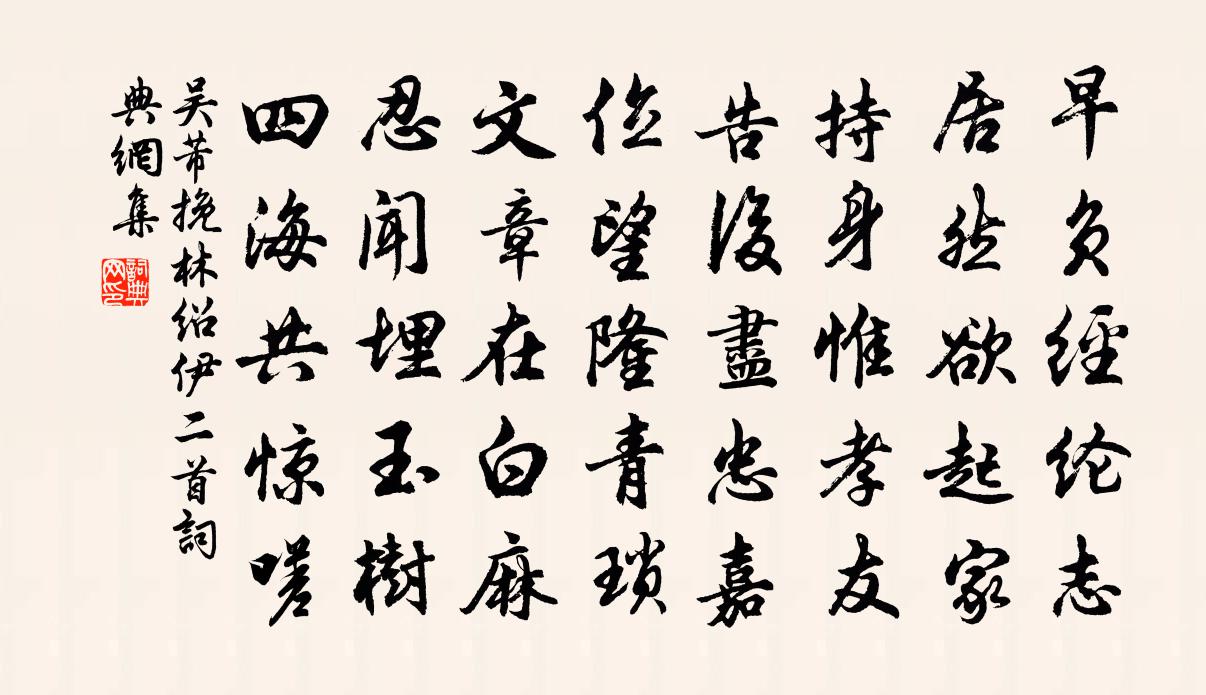 早负經纶志
居然欲起家
持身惟孝友
告後盡忠嘉
位望隆青瑣
文章在白麻
忍闻埋玉樹
四海共惊嗟
吴芾挽林绍伊二首詞
典網集
詞典网印